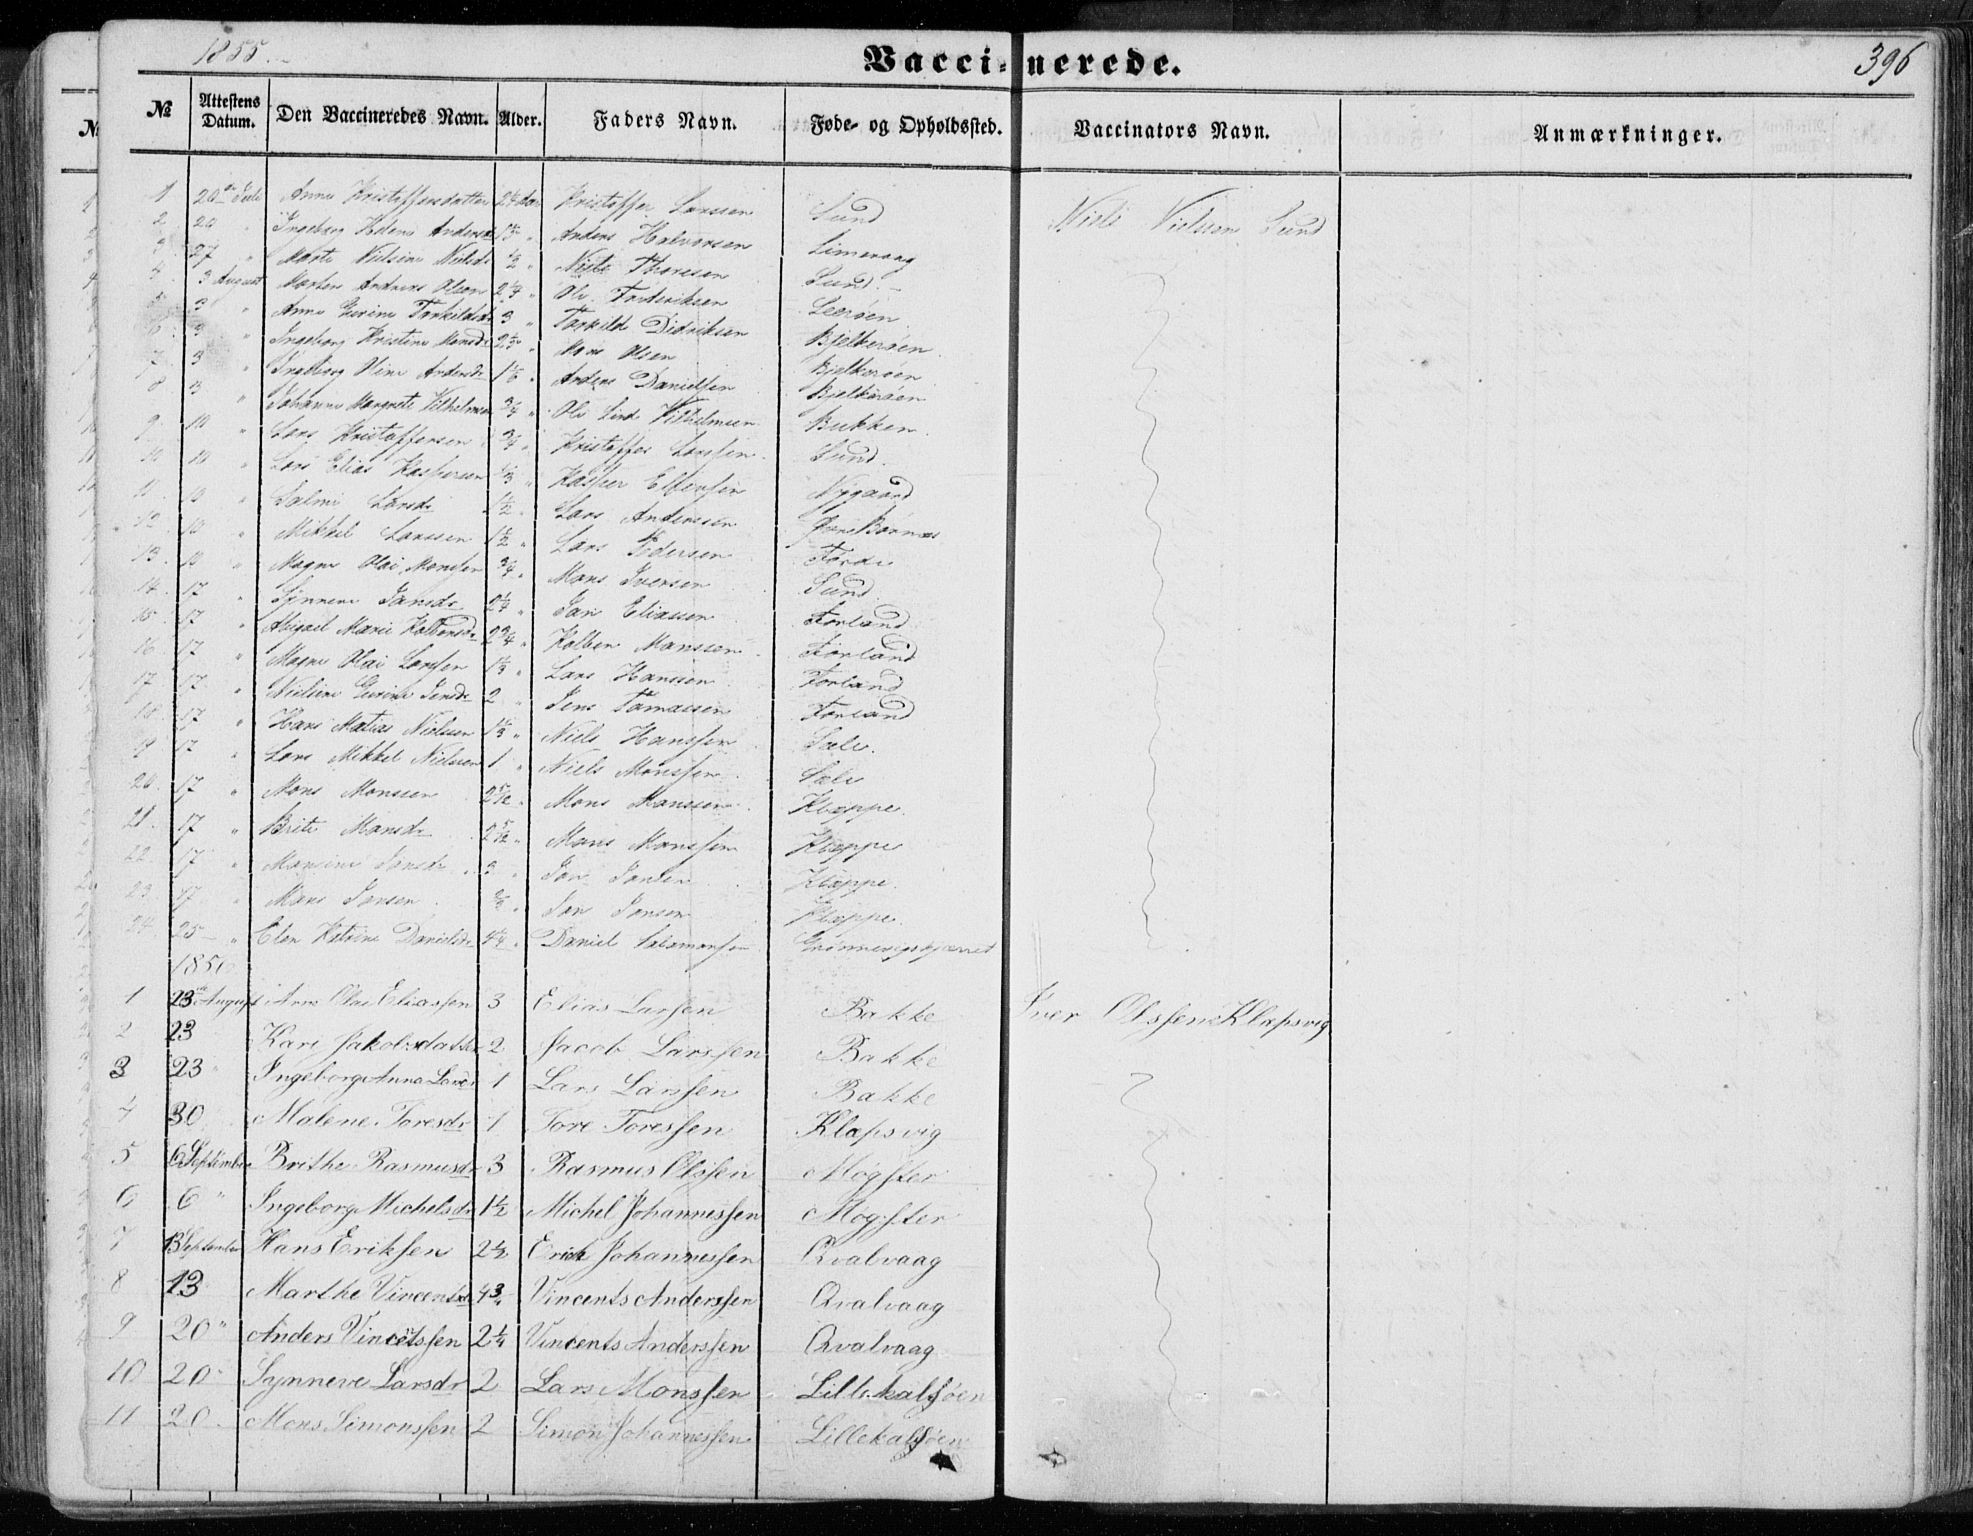 1855.
Vaccinerede.
396
№ Attestens Datum. Den Vaccineredes Navn. Alder. Faders Navn. Føde- og Opholdssted. Vaccinators Navn. Anmærkninger.
1 20 Juli Anna Kristoffersdatter 2¼ Aar Kristoffer Larssen Sund Niels Nielsen Sund
2 20 " Ingeborg Helena Andersd " Anders Halvorsen Limevaag
3 27 " Marte Nilsine Nielsdr ½ " Niels Thoresen Sund
4 3 August Morten Andreas Olsen 2¼ " Ole Frederiksen Leerøen
5 3 " Anna Gurine Torkildsdr 3 " Torkild Didriksen Bjelkerøen
6 3 " Ingeborg Kristine Monsdr " Mons Olsen Bjelkerøen
7 3 " Ingeborg Oline Andersdr " Anders Danielsen Bjelkerøen
8 3 " Johanne Margrete Vilhelmsen ¾ " Ole Lind Vilhelmsen Bukken
9 10 " Lars Kristoffersen ¾ " Kristoffer Larssen Sund
10 10 " Lars Elias Kaspersen " Kasper Nygaard
11 10 " Salmi Larsdr 1½ " Lars Anderssen
12 10 " Mikkel Larssen 1½ " Lars Pedersen Førde
13 10 " Magne Olai Monssen ¾ " Mons Iversen Sund
14 17 " Synneve Jansdr 2¼ " Jan Eliassen Forland
15 17 " Abigael Marie Kolbensdr 2¾ " Kolben Monssen Forland
16 17 " Magne Olai Larssen " Lars Hanssen Forland
17 17 " Nielsine Gurine Jensdr 2 " Jens Tomassen Forland
18 17 " Hans Matias Nielssen " Niels Hanssen Sæle
19 17 " Lars Mikkel Nielssen 1 " Niels Monssen Sæle
20 17 " Mons Monssen 2 5/12 " Mons Monssen Klæppe
21 17 " Brite Monsdr 2 5/12 " Mons Monssen Klæppe
22 17 " Monsine Jonsdr 3 " Jon Jonsen Klæppe
23 17 " Mons Jonsen " Jon Jonsen Klæppe
24 25 " Elen Katrine Danielsdr 4¼ " Daniel Salamonsen
1856
1 23 August Arne Olai Eliassen 3 Elias Larssen Bakke Iver Olssen Klapsvig
2 23 Kari Jakobsdatter 2 Jacob Larssen Bakke
3 23 " Ingeborg Anna Larsdr 1 Lars Larssen Bakke
4 30 Malene Toresdr 1 Tore Toressen Klapsvig
5 6 September Brithe Rasmusdr 3 Rasmus Olssen Møgster
6 6 " Ingeborg Michelsdr 1½ Michel Johannessen Møgster
7 13 September Hans Eriksen 2½ Erick Johannessen Qvalvaag
8 13 Marthe Vincentsdr 4¾ Vincents Anderssen Qvalvaag
9 20 " Anders Vincetssen 2¼ Vincents Anderssen Qvalvaag
10 20 " Synneve Larsdr 2 Lars Monssen Lille kalsøen
11 20 Mons Simonssen 2 Simon Johannessen Lillekalsøen